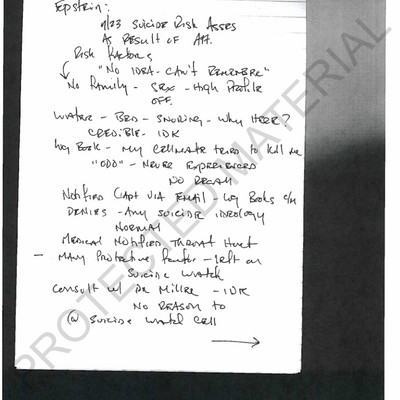 Epstein:
7/23 Suicide Risk Asses
As Result of Att.
Risk Factors
"No IDEA - Can't Remember"
No Family - Sex - High Profile
OFF.
Water - Bed - Snoring - Why Here?
Credible - IDK
Log Book - My Cellmate tried to kill me
"ODD" - Never Experienced
No Recall
Notified Capt via Email - Log Books
Denies - Any Suicide Ideology
Normal
Medical Notified Throat Hurt
- Many Protective Factor - left on
Suicide Watch
Consult w/ Dr Miller - IDK
No Reason to
@ Suicide Watch Cell
PROTECTED MATERIAL